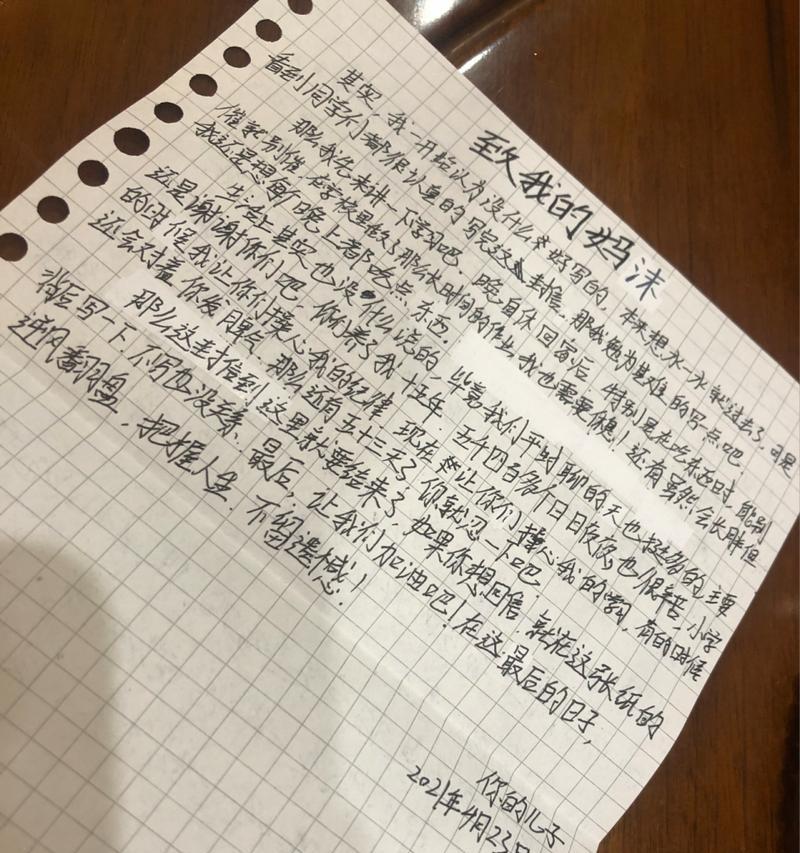 致我的妈沫
其实,我一开始认为没什么好写的,本来想水一水就过去了,可是
看到同学们都很认真的写完这封信,那我勉为其难的写一点吧。
那么我先来讲一下学习吧,晚自休回家后,特别是在吃东西时,能别
催就别催,在学校里做了那么长时间的作业我也需要休息!还有虽然会长胖但
我还是想每日晚上都吃点东西。
生活上其实也没什么说的,毕竟我们平时聊的天也挺多的,主要
还是谢谢你们吧,你们养了我十五年,五千四百多个日日夜夜也很辛苦,小学
的时候我让你们操心我的纪律,现在让你们操心我的学习,有的时候
还会对着你发脾气,那么还有五十三天了你就忍一下吧
那么这封信到这里就要结束了,如果你想回信,就在这张纸的
背后写一下,不写也没关系,最后,让我们加油吧!在这最后的日子,
逆风翻盘,把握人生,不留遗憾!
你的儿子
2021年4月23日